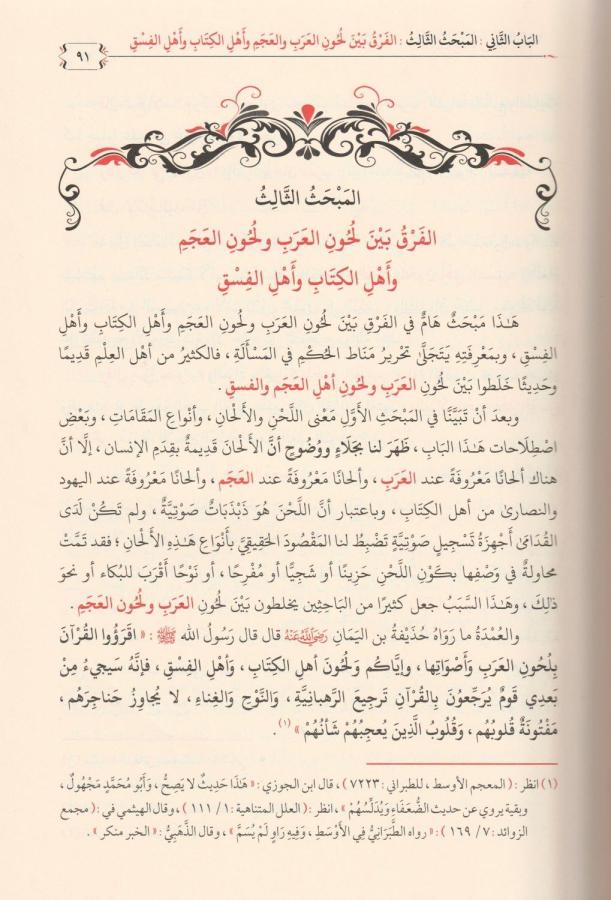 البَابُ الثَّانِي : المَبْحَثُ الثَّالِثُ : الفَرْقُ بَيْنَ لُحُونِ العَرَبِ والعَجَمِ وأَهْلِ الكِتَابِ وأَهْلِ الفِسْقِ
٩١
المَبْحَثُ الثَّالِثُ
الفَرْقُ بَيْنَ لُحُونِ العَرَبِ ولُحُونِ العَجَمِ
وأَهْلِ الكِتَابِ وأَهْلِ الفِسْقِ
هَـٰذا مَبْحَثٌ هَامٌّ في الفَرْقِ بَيْنَ لُحُونِ العَرَبِ ولُحُونِ العَجَمِ وأَهْلِ الكِتَابِ وأَهْلِ
الفِسْقِ ، وبمَعْرِفَتِهِ يَتَجَلَّىٰ تحْرِيرُ مَنَاطِ الحُكْمِ في المَسْأَلَةِ ، فالكثيرُ من أهْلِ العِلْمِ قَدِيمًا
وحَدِيثًا خَلَطُوا بَيْنَ لُحُونِ العَرَبِ ولُحُونِ أهْلِ العَجَمِ والفسقِ .
وبعدَ أنْ تَبَيَّنَّا في المَبْحَثِ الأَوَّلِ مَعْنَى اللَّحْنِ والأَلْحَانِ ، وأنْواعِ المَقَامَاتِ ، وبَعْضِ
اصْطِلَاحَاتِ هَـٰذا البَابِ ، ظَهَرَ لنا بجَلَاءٍ ووُضُوحٍ أنَّ الأَلْحَانَ قَدِيمَةٌ بقِدَمِ الإنسان ، إلَّا أنَّ
هناك ألحَانًا مَعْرُوفَةً عند العَرَبِ ، وألحَانًا مَعْرُوفَةً عند العَجَمِ ، وألحَانًا مَعْرُوفَةً عند اليهود
والنصارىٰ من أهل الكِتَابِ ، وباعتبار أنَّ اللَّحْنَ هُوَ ذَبْذَبَاتٌ صَوْتِيَّةٌ ، ولم تَكُنْ لَدَى
القُدَامَىٰ أجْهِزَةُ تَسْجِيلٍ صَوْتِيَّةٍ تَضْبِطُ لنا المَقْصُودَ الحَقِيقِيَّ بأنْوَاعِ هَـٰذِهِ الأَلْحَانِ ؛ فقد تَمَّتْ
محاولةٌ في وَصْفِهَا بكَوْنِ اللَّحْنِ حَزِينًا أو شَجِيًّا أو مُفْرِحًا ، أو نَوْحًا أقْرَبَ للبُكَاءِ أو نحوَ
ذلِكَ ، وهَـٰذَا السَّبَبُ جعل كثيرًا من البَاحِثِينَ يخلطون بَيْنَ لحُونِ العَرَبِ ولُحُونِ العَجَمِ .
والعُمْدَةُ ما رَوَاهُ حُذَيْفَةُ بن اليَمَانِ رَضِيَ اللَّهُ عَنْهُ قال قال رَسُولُ الله ﷺ : « اقرَؤُوا القُرْآنَ
بِلُحُونِ العَرَبِ وأصْوَاتِها ، وإيَّاكُم ولُحُونَ أهلِ الكِتَابِ ، وأَهْلِ الفِسْقِ ، فإنَّهُ سيَجِيءُ مِنْ
بَعدِي قَومٌ يُرَجِّعُونَ بِالقُرْآنِ تَرجِيعَ الرَّهبانِيَّةِ ، والنَّوْحِ والغِناءِ ، لا يُجاوِزُ حَناجِرَهُم ،
مَفْتُونَةٌ قُلوبُهُم ، وقُلُوبُ الَّذِينَ يُعجِبُهُمْ شَأنُهُمْ » (١) .
(١) انظر : ( المعجم الأوسط ، للطبراني : ٧٢٢٣ ) ، قال ابن الجوزي : « هَذَا حَدِيثٌ لا يَصِحُّ ، وَأَبُو مُحَمَّدٍ مَجْهُولٌ ،
وبقية يروي عن حديث الضُّعَفَاءِ وَيُدَلِّسُهُمْ » ، انظر : ( العلل المتناهية : ١/ ١١١ ) ، وقال الهيثمي في : ( مجمع
الزوائد : ٧/ ١٦٩ ) : « رواه الطَّبَرَانِيُّ فِي الأَوْسَطِ ، وَفِيهِ رَاوٍ لَمْ يُسَمَّ » ، وقال الذَّهَبِيُّ : « الخبر منكر » .